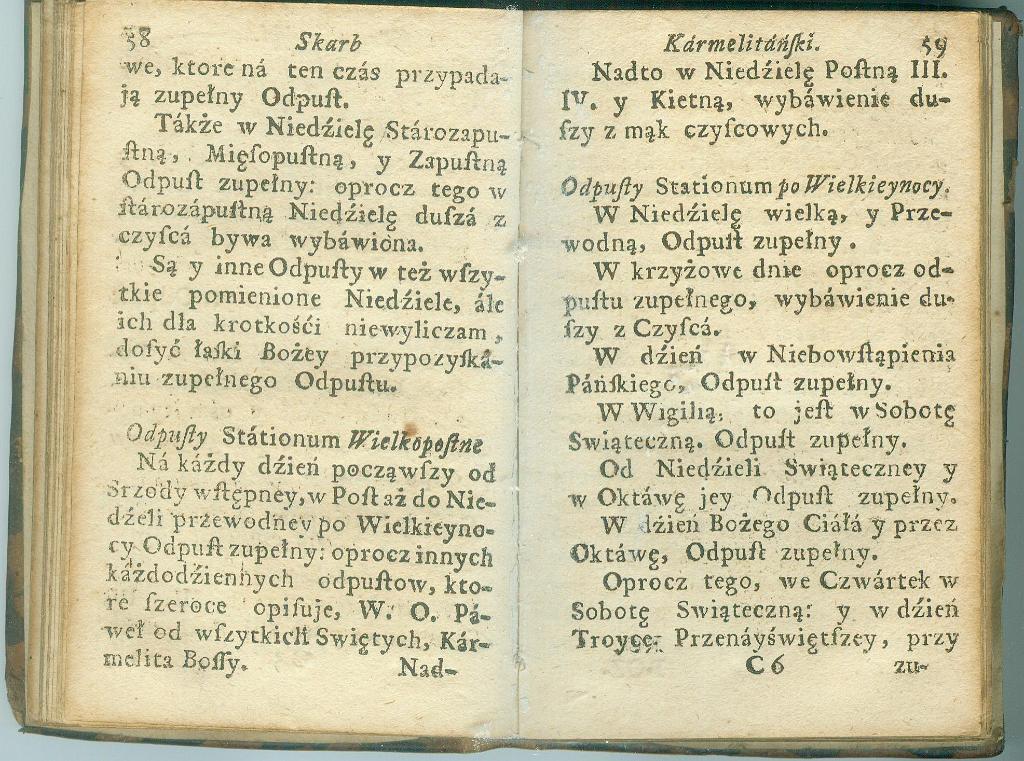 58 Skarb
we, ktore ná ten czás przypada-
ją zupełny Odpuſt.
Tákże w Niedźielę Stározapu-
ſtną, Mięſopuſtną, y Zapuſtną
Odpuſt zupełny: oprocz tego w
ſtározápuſtną Niedźielę duſzá z
czyſcá bywa wybáwiona.
Są y inne Odpuſty w też wſzy-
tkie pomienione Niedźiele, ále
ich dla krotkośći niewyliczam,
doſyć łaſki Bożey przypozyſká-
niu zupełnego Odpuſtu.
Odpuſty Státionum Wielkopoſtne
Ná káżdy dźień począwſzy od
Srzody wſtępney, w Poſt aż do Nie-
dźieli przewodney po Wielkieyno-
cy Odpuſt zupełny: oprocz innych
káżdodźiennych odpuſtow, kto-
re ſzeroce opiſuje, W. O. Pá-
weł od wſzytkich Swiętych, Kár-
melita Boſſy.
Nad-
Kármelitáńſki. 59
Nadto w Niedźielę Poſtną III.
IV. y Kietną, wybáwienie du-
ſzy z mąk czyſcowych.
Odpuſty Stationum po Wielkieynocy.
W Niedźielę wielką, y Prze-
wodną, Odpuſt zupełny.
W krzyżowe dnie oprocz od-
puſtu zupełnego, wybáwienie du-
ſzy z Czyſcá.
W dźień w Niebowſtąpienia
Páńſkiego, Odpuſt zupełny.
W Wigilią, to jeſt w Sobotę
Swiąteczną. Odpuſt zupełny.
Od Niedźieli Swiąteczney y
w Oktáwę jey Odpuſt zupełny.
W dźień Bożego Ciáłá y przez
Oktáwę, Odpuſt zupełny.
Oprocz tego, we Czwártek w
Sobotę Swiąteczną: y w dźień
Troycę Przenáyświętſzey, przy
C6 zu-